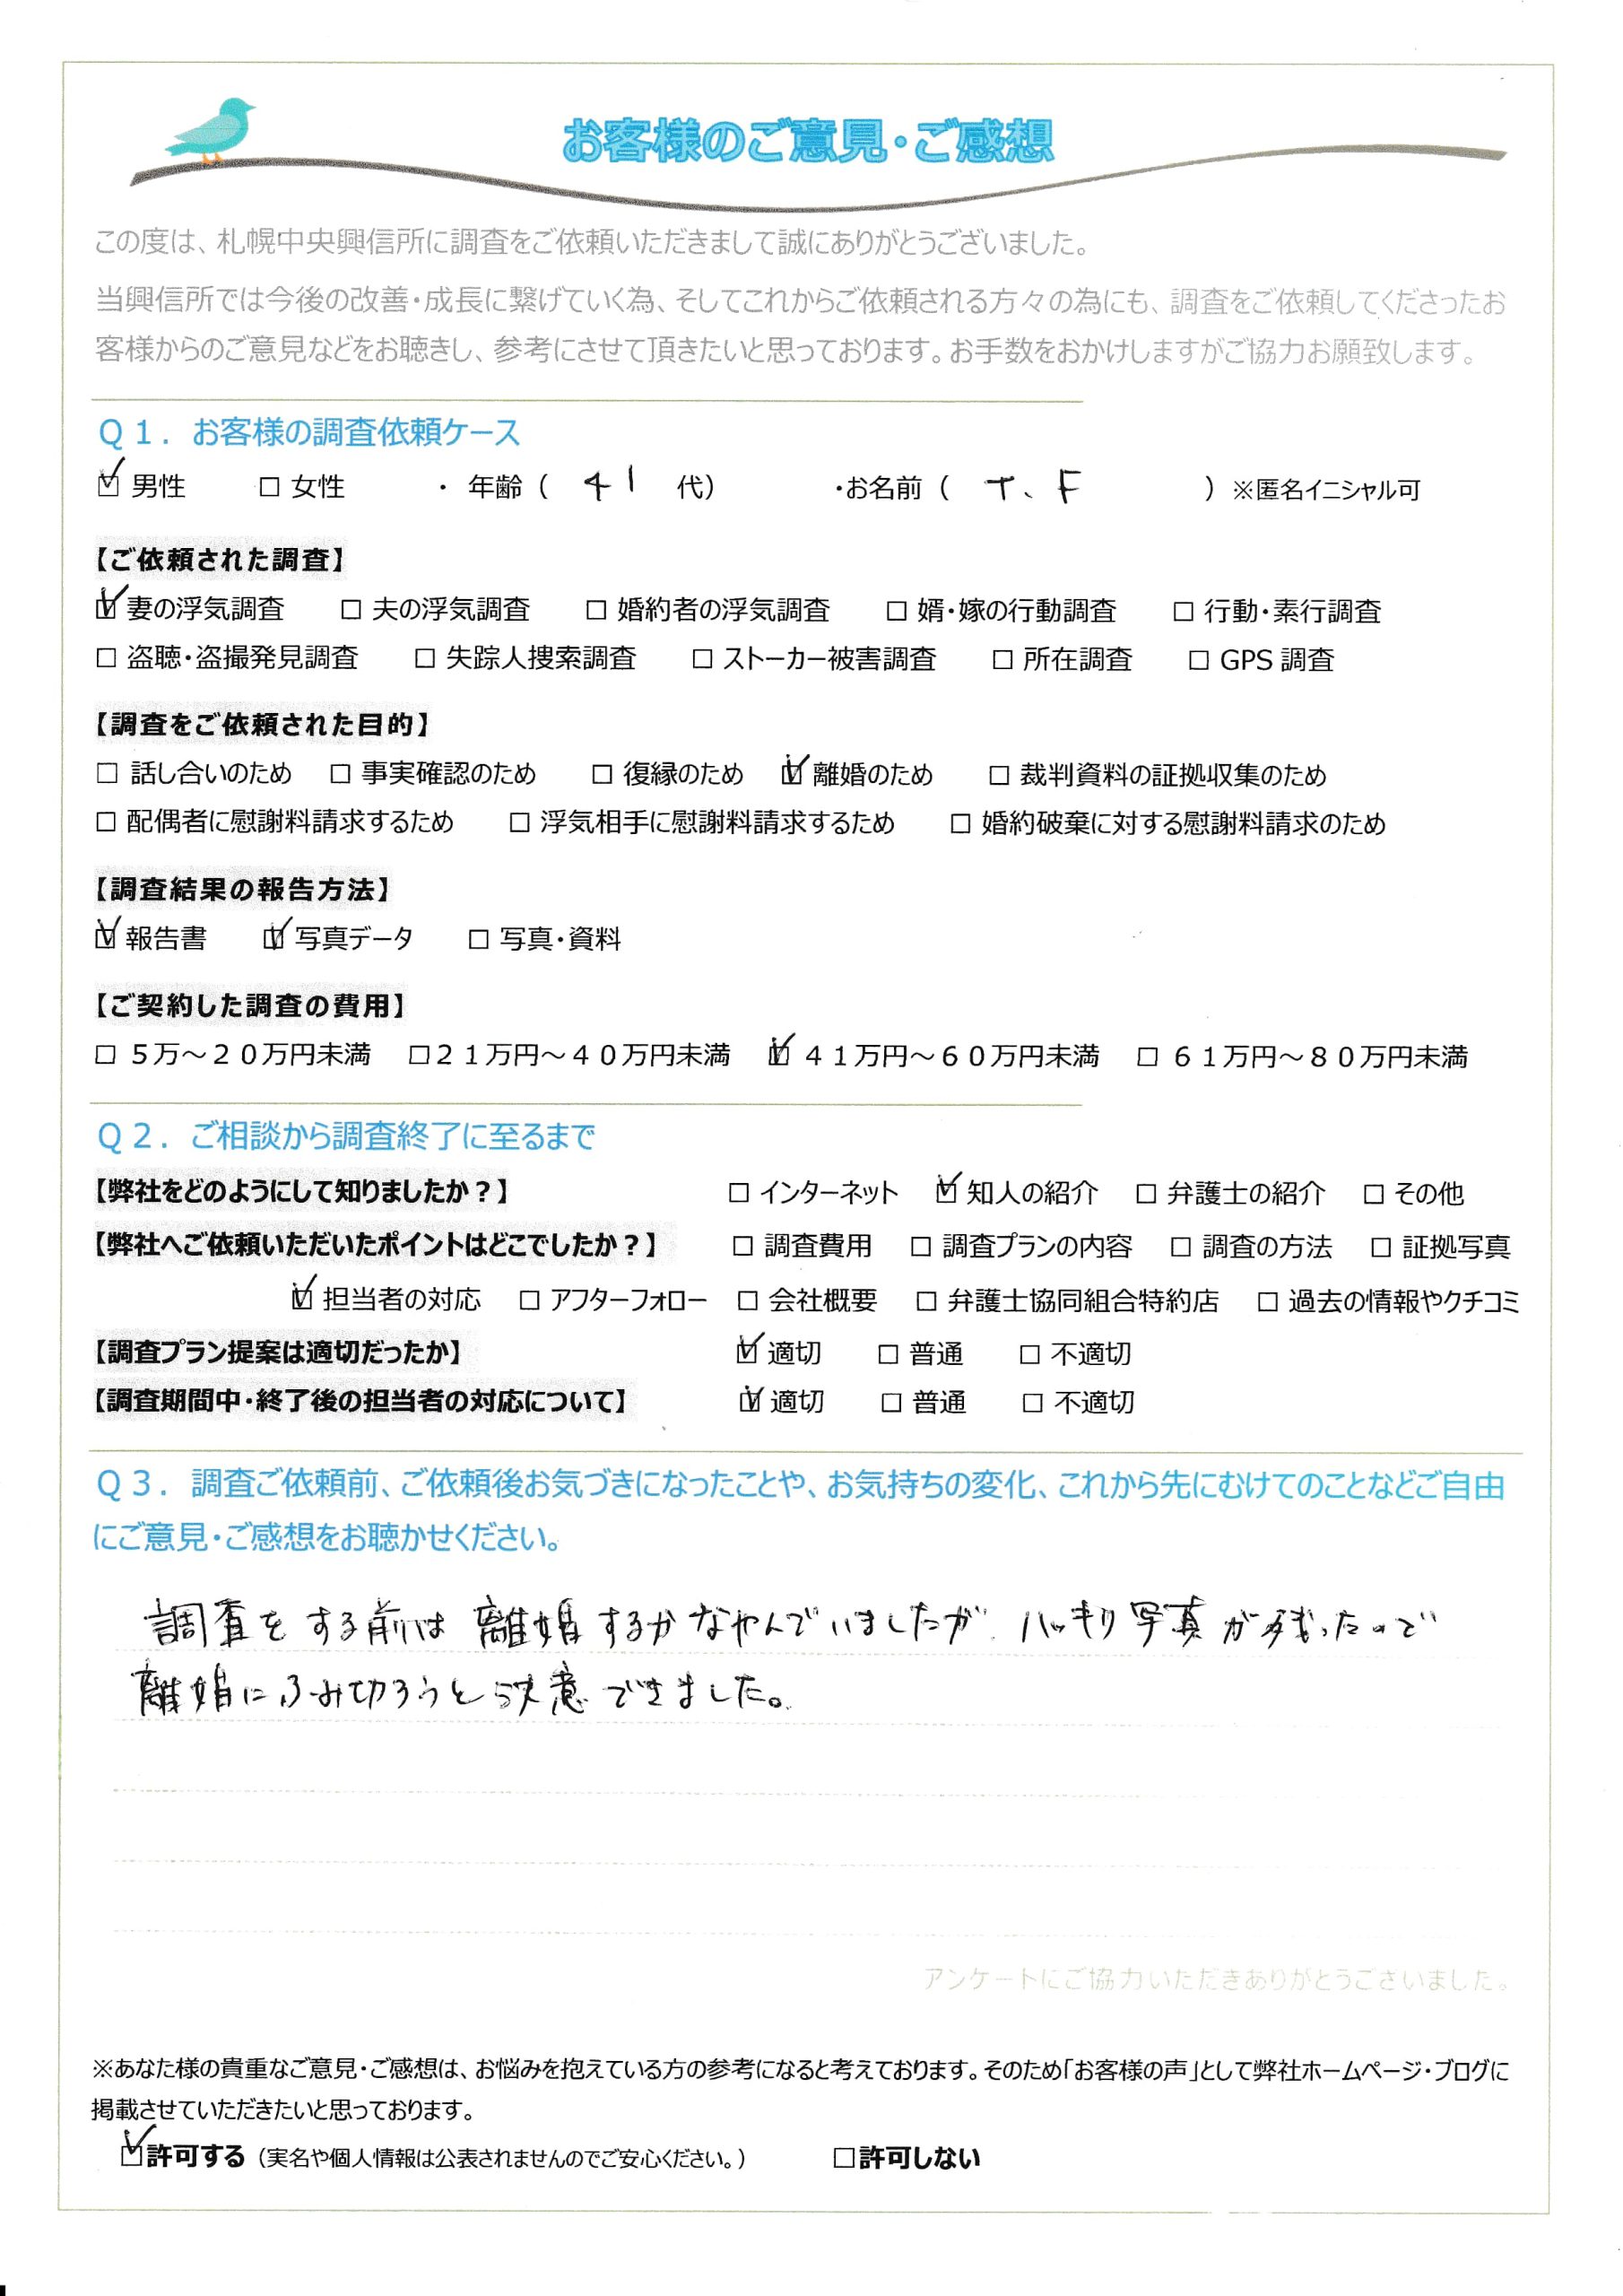 お客様のご意見・ご感想
この度は、札幌中央興信所に調査をご依頼いただきまして誠にありがとうございました。
当興信所では今後の改善・成長に繋げていく為、そしてこれからご依頼される方々の為にも、調査をご依頼してくださったお
客様からのご意見などをお聴きし、参考にさせて頂きたいと思っております。お手数をおかけしますがご協力お願致します。
Q1. お客様の調査依頼ケース
☑ 男性 □ 女性 ・ 年齢（ 41 代） ・お名前（ T、F ）※匿名イニシャル可
【ご依頼された調査】
☑ 妻の浮気調査 □ 夫の浮気調査 □ 婚約者の浮気調査 □ 婿・嫁の行動調査 □ 行動・素行調査
□ 盗聴・盗撮発見調査 □ 失踪人捜索調査 □ ストーカー被害調査 □ 所在調査 □ GPS 調査
【調査をご依頼された目的】
□ 話し合いのため □ 事実確認のため □ 復縁のため ☑ 離婚のため □ 裁判資料の証拠収集のため
□ 配偶者に慰謝料請求するため □ 浮気相手に慰謝料請求するため □ 婚約破棄に対する慰謝料請求のため
【調査結果の報告方法】
☑ 報告書 ☑ 写真データ □ 写真・資料
【ご契約した調査の費用】
□ 5万～20万円未満 □21万円～40万円未満 ☑ 41万円～60万円未満 □ 61万円～80万円未満
Q2. ご相談から調査終了に至るまで
【弊社をどのようにして知りましたか？】 □ インターネット ☑ 知人の紹介 □ 弁護士の紹介 □ その他
【弊社へご依頼いただいたポイントはどこでしたか？】 □ 調査費用 □ 調査プランの内容 □ 調査の方法 □ 証拠写真
☑ 担当者の対応 □ アフターフォロー □ 会社概要 □ 弁護士協同組合特約店 □ 過去の情報やクチコミ
【調査プラン提案は適切だったか】 ☑ 適切 □ 普通 □ 不適切
【調査期間中・終了後の担当者の対応について】 ☑ 適切 □ 普通 □ 不適切
Q3. 調査ご依頼前、ご依頼後お気づきになったことや、お気持ちの変化、これから先にむけてのことなどご自由
にご意見・ご感想をお聴かせください。
調査をする前は離婚するかなやんでいましたが、ハッキリ写真が残ったので
離婚にふみ切ろうと決意できました。
アンケートにご協力いただきありがとうございました。
※あなた様の貴重なご意見・ご感想は、お悩みを抱えている方の参考になると考えております。そのため「お客様の声」として弊社ホームページ・ブログに
掲載させていただきたいと思っております。
☑許可する（実名や個人情報は公表されませんのでご安心ください。） □許可しない